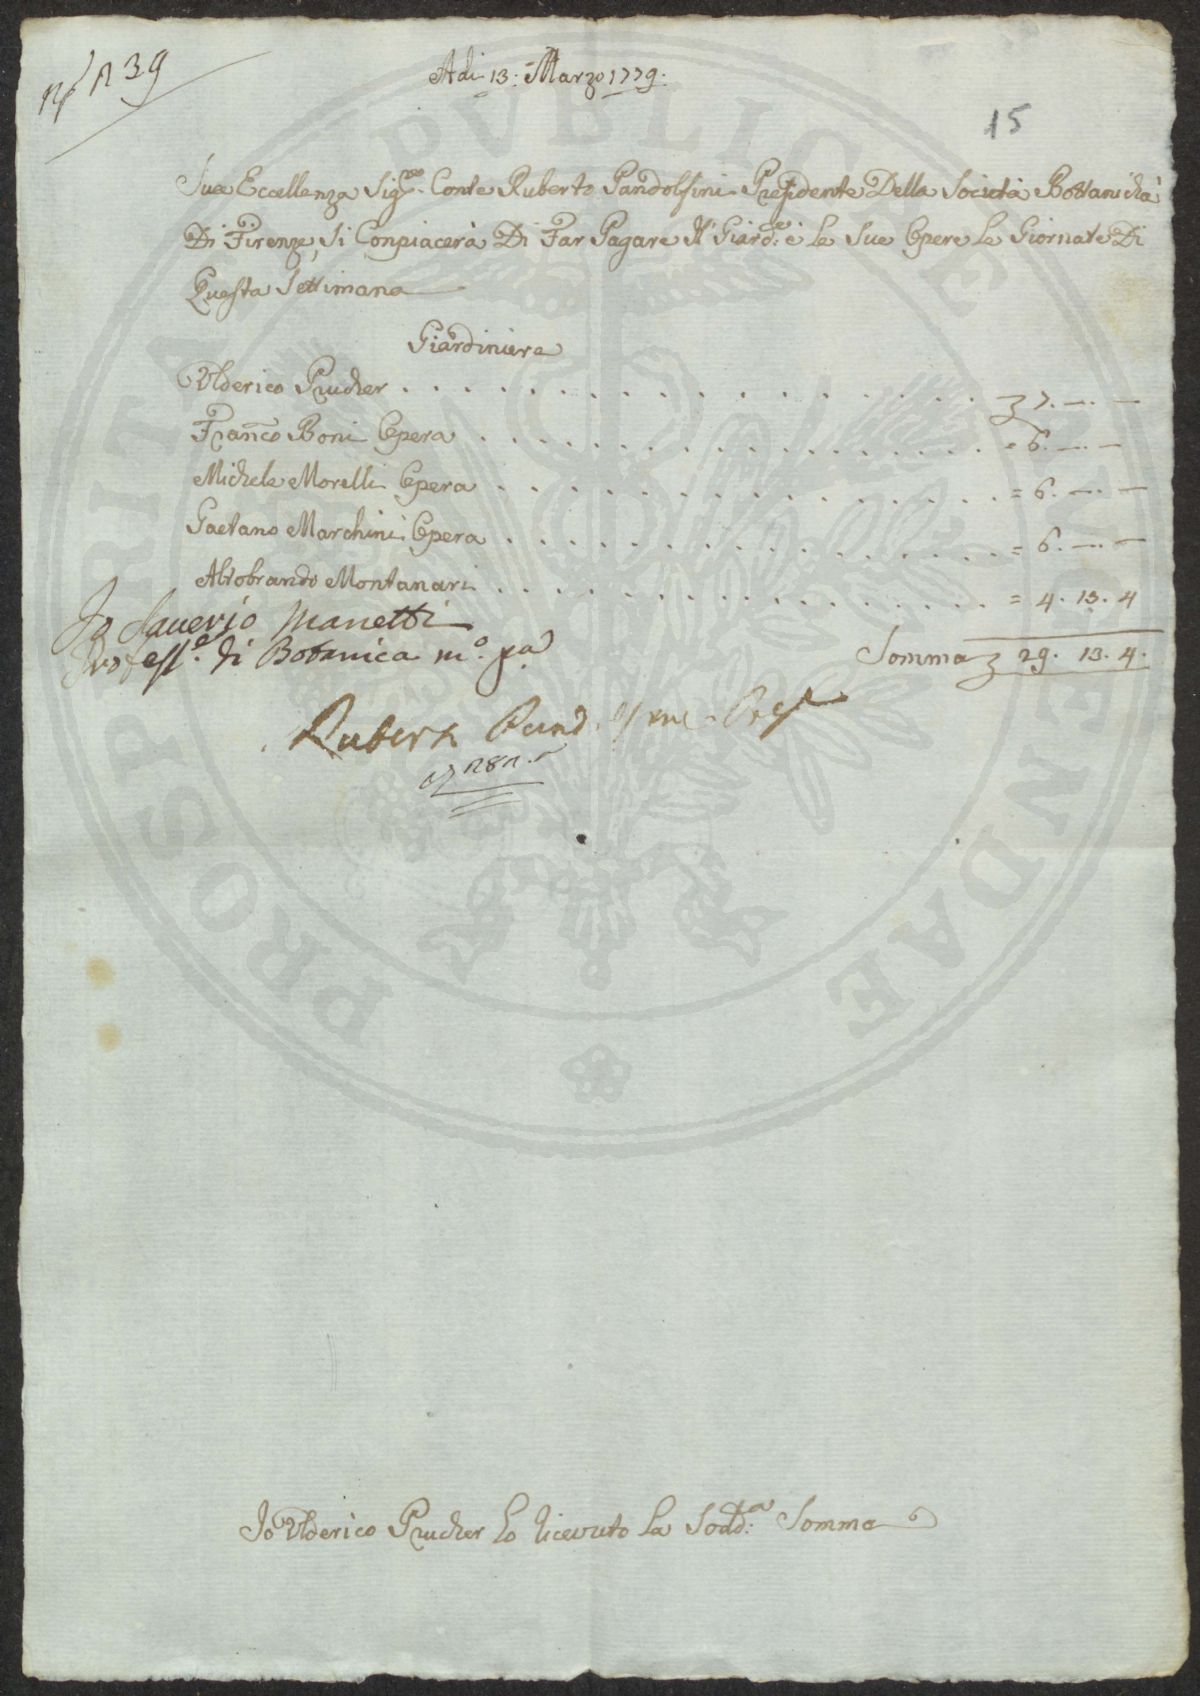 N° 139
Adi 13: Marzo 1779.
15
Sua Eccellenza Sig.re Conte Ruberto Pandolfini Presidente Della Società Bottanicha
Di Firenze Si Conpiacerà Di Far Pagare Il Giard.e è le Sue Opere le Giornate Di
Questa Settimana
Giardiniere
Ulderico Prucher . . . . . . . . . . . . . . . 7. — . —
Franco Boni Opera . . . . . . . . . . . . . . = 6. — . —
Michele Morelli Opera . . . . . . . . . . . . . = 6. — . —
Gaetano Marchini Opera . . . . . . . . . . . . . = 6. — . —
Aldobrando Montanari . . . . . . . . . . . . . = 4. 13. 4
Io Saverio Manetti
Profess.e di Botanica m.o p.a
Somma 29. 13. 4.
Ruberto Pand.
Io Ulderico Prucher ho ricevuto la Sodd.a Somma
PROSPERITATI PVBLICAE AVGENDAE